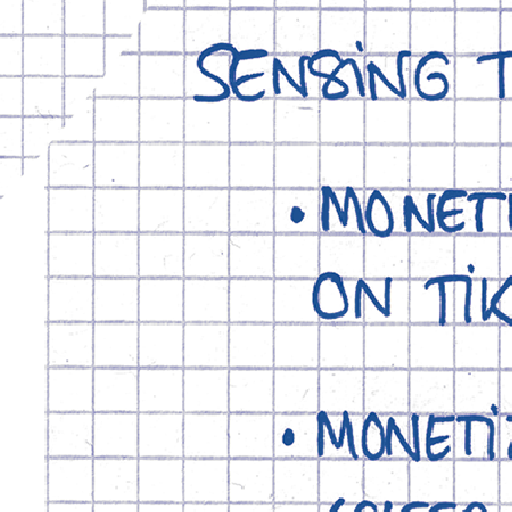 SENSING T
• MONETI
ON TIK
• MONETIZ